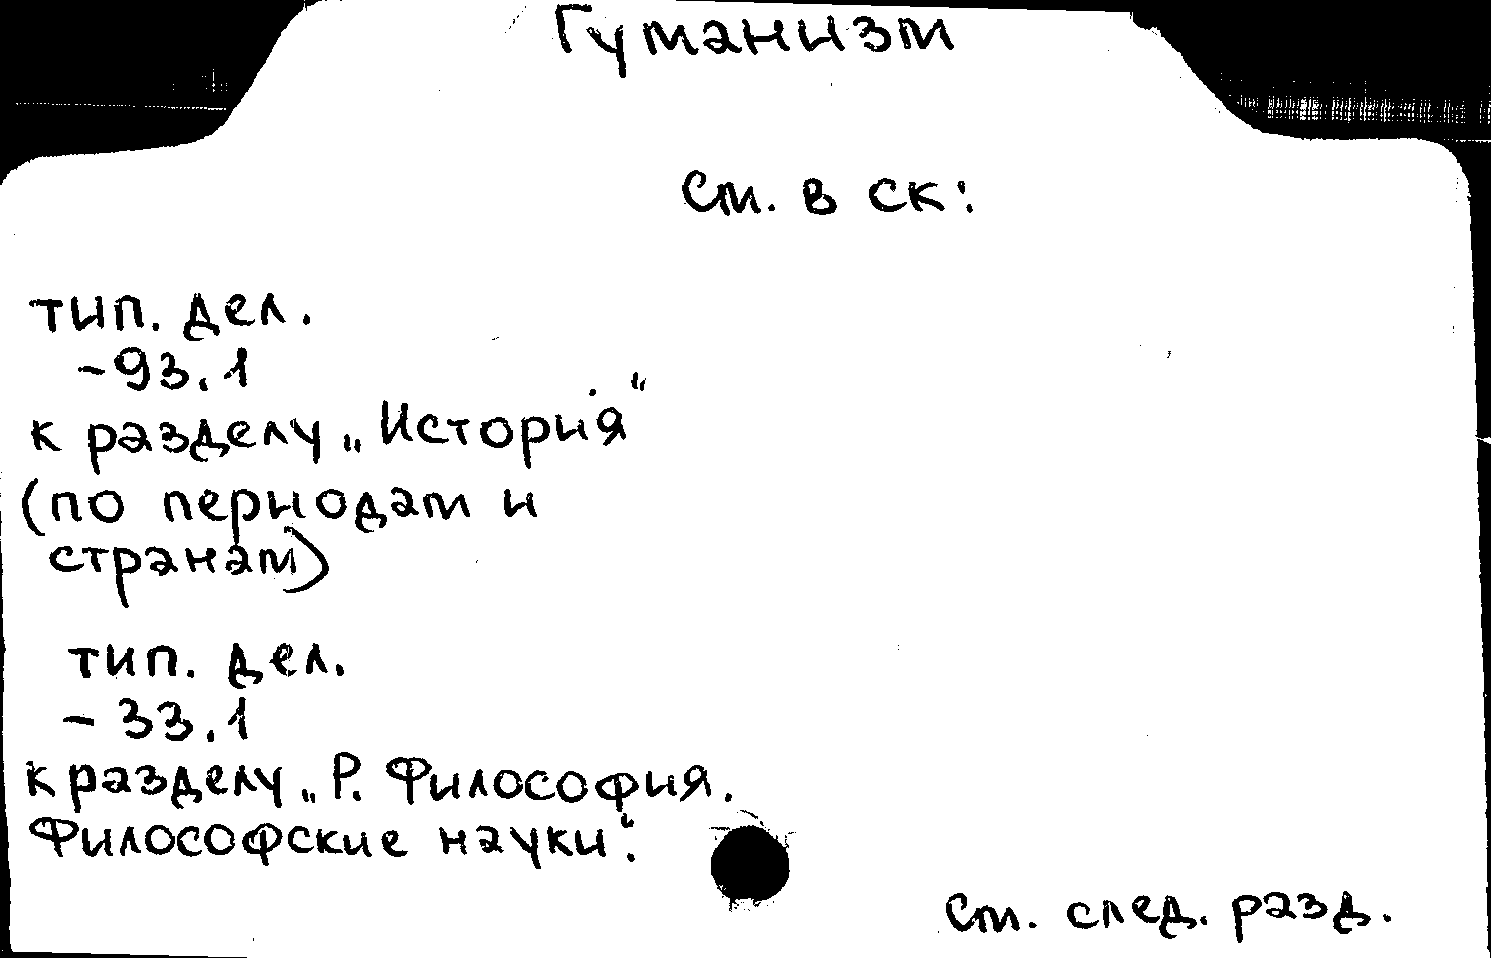 Гуманизм
См. в СК:
тип. дел.
-93.1
к разделу „История“
(по периодам и
странам)
тип. дел.
- 33.1
к разделу „Р. Философия.
Философские науки“.
См. след. разд.